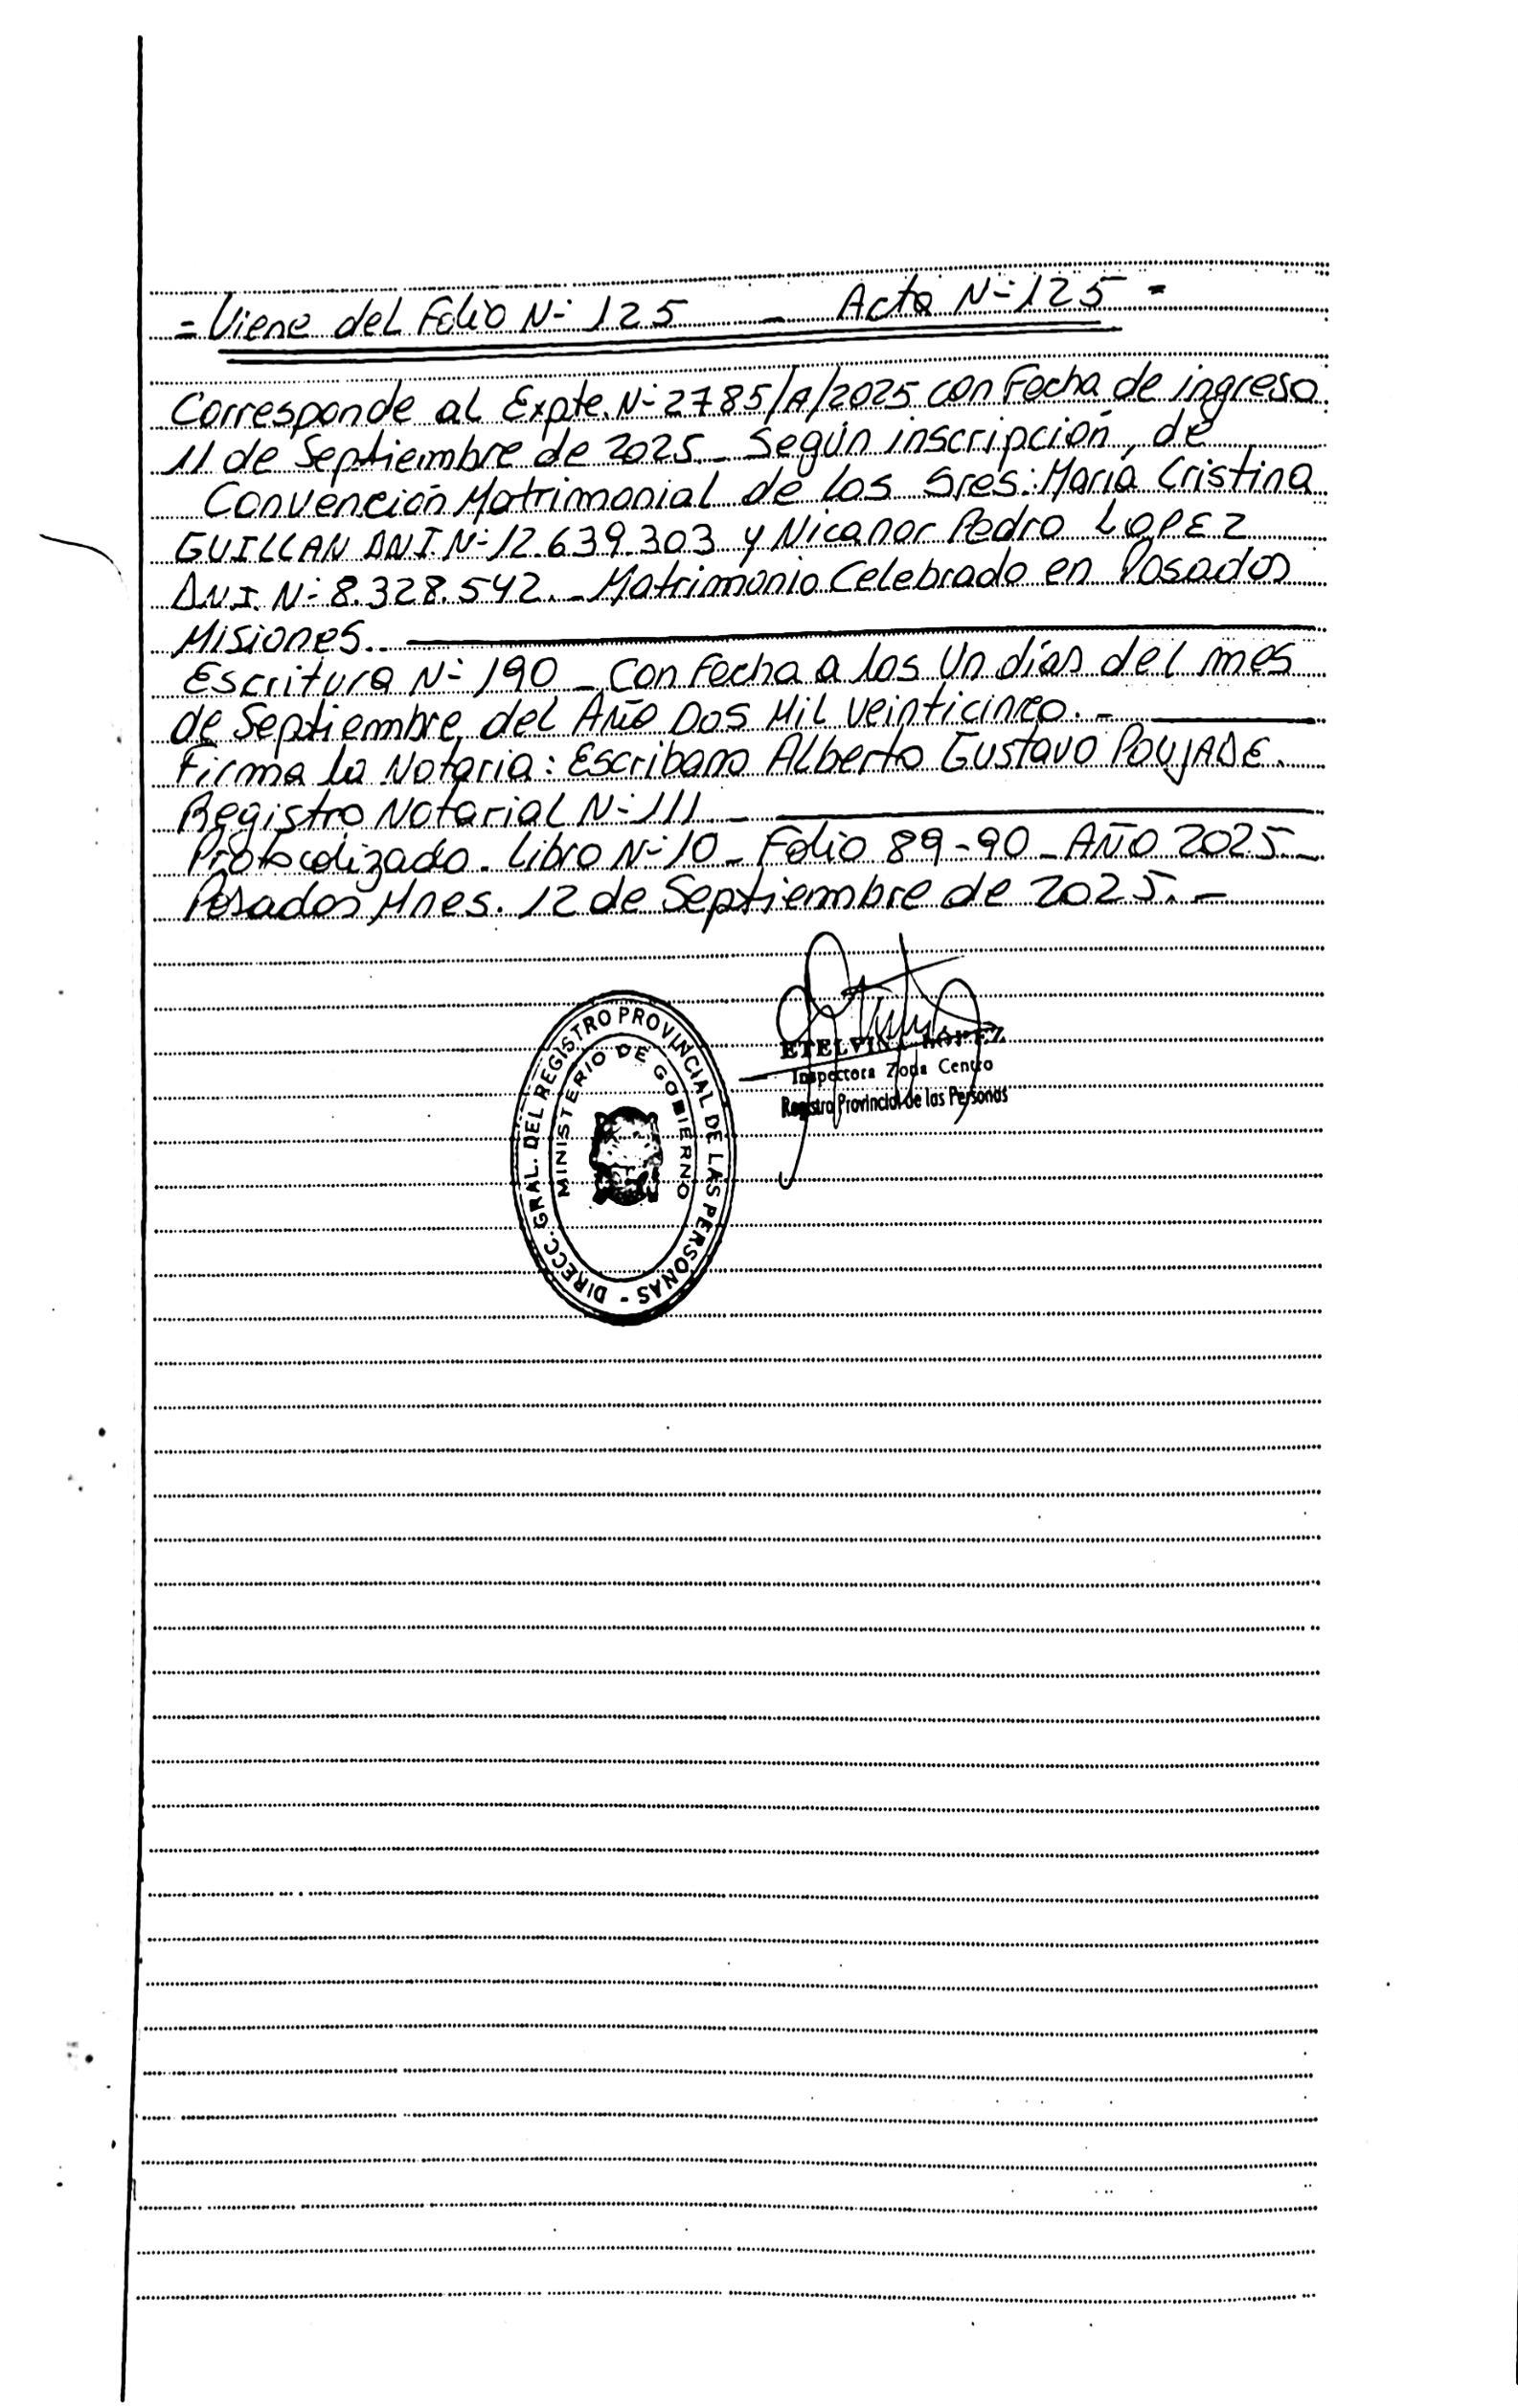 = Viene del Folio N- 125 - Acta N- 125 -
Corresponde al Expte. N- 2785/A/2025 con Fecha de ingreso
11 de Septiembre de 2025 - Según inscripción, de
Convención Matrimonial de los Sres: María Cristina
GUILLAN DNI. N- 12.639.303 y Nicanor Pedro LOPEZ
DNI. N- 8.328.542. - Matrimonio Celebrado en Posadas
Misiones. -
Escritura N- 190 - Con Fecha a los Un días del mes
de Septiembre del Año Dos Mil veinticinco. -
Firma la Notaria: Escribano Alberto Gustavo POUJADE.
Registro Notarial N- 111 -
Protocolizado - Libro N- 10 - Folio 89-90 - AÑO 2025 -
Posadas Mnes. 12 de Septiembre de 2025. -
ETELVINA LOPEZ
Inspectora Zona Centro
Registro Provincial de las Personas
DIRECC. GRAL. DEL REGISTRO PROVINCIAL DE LAS PERSONAS -
MINISTERIO DE GOBIERNO